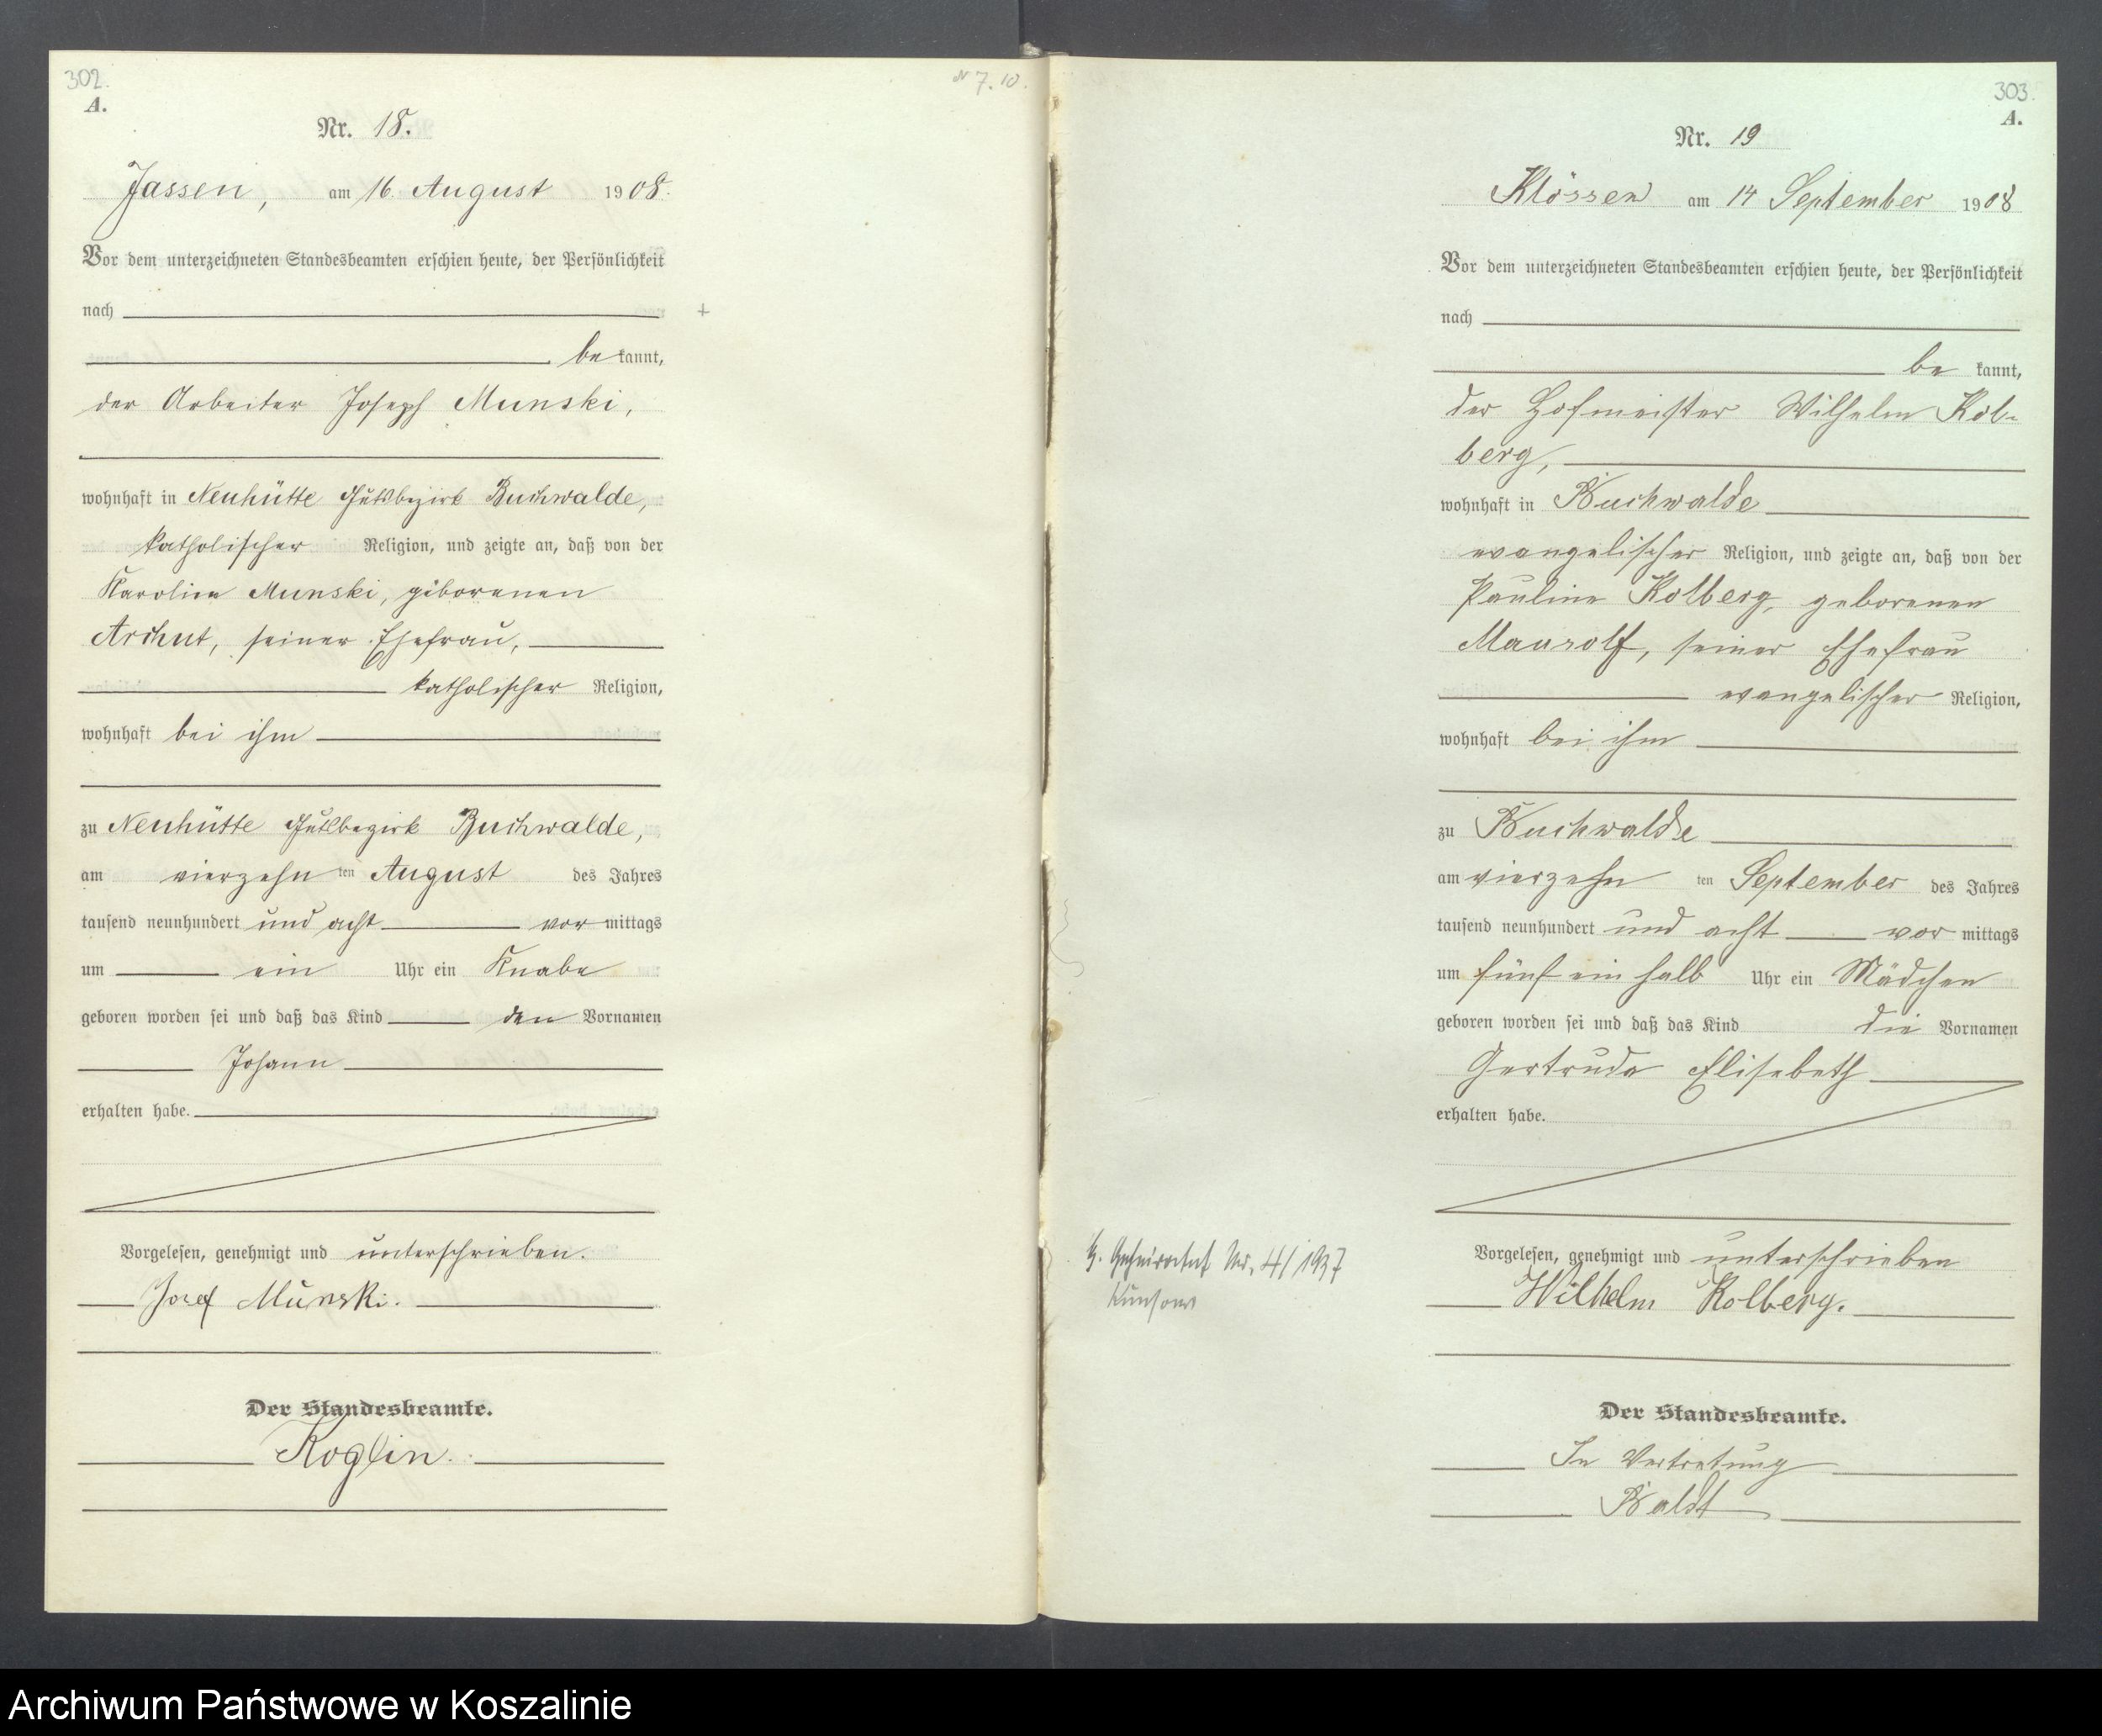 302.
A.
N 7. 10.
Nr. 18.
Jassen, am 16. August 1908.
Vor dem unterzeichneten Standesbeamten erschien heute, der Persönlichkeit
nach
be kannt,
der Arbeiter Joseph Munski,
wohnhaft in Neuhütte Gutsbezirk Buchwalde,
katholischer Religion, und zeigte an, daß von der
Karolina Munski, geborenen
Archut, seiner Ehefrau,
katholischer Religion,
wohnhaft bei ihm
zu Neuhütte Gutsbezirk Buchwalde,
am vierzehn ten August des Jahres
tausend neunhundert und acht vor mittags
um ein Uhr ein Knabe
geboren worden sei und daß das Kind den Vornamen
Johann
erhalten habe.
Vorgelesen, genehmigt und unterschrieben.
Josef Munski.
Der Standesbeamte.
Koglin.
303.
A.
Nr. 19
Klössen am 14 September 1908
Vor dem unterzeichneten Standesbeamten erschien heute, der Persönlichkeit
nach
be kannt,
der Hofmeister Wilhelm Kol-
berg,
wohnhaft in Buchwalde
evangelischer Religion, und zeigte an, daß von der
Pauline Kolberg, geborenen
Maurolf, seiner Ehefrau
evangelischer Religion,
wohnhaft bei ihm
zu Buchwalde
am vierzehn ten September des Jahres
tausend neunhundert und acht vor mittags
um fünf ein halb Uhr ein Mädchen
geboren worden sei und daß das Kind die Vornamen
Gertrude Elisabeth
erhalten habe.
Vorgelesen, genehmigt und unterschrieben
Wilhelm Kolberg.
Der Standesbeamte.
In Vertretung
Baldt
G. Geheiratet Nr. 4/1937
Archiwum Państwowe w Koszalinie